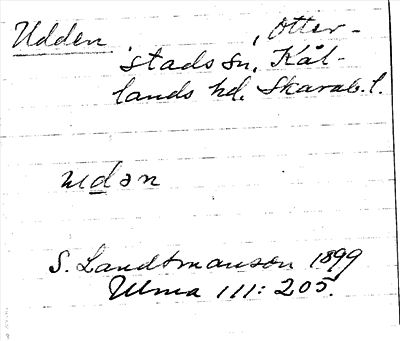 Udden, Otter-
stads sn, Kål-
lands hd. Skarab. l.
udən
S. Landtmanson 1899
Ulma 111: 205.